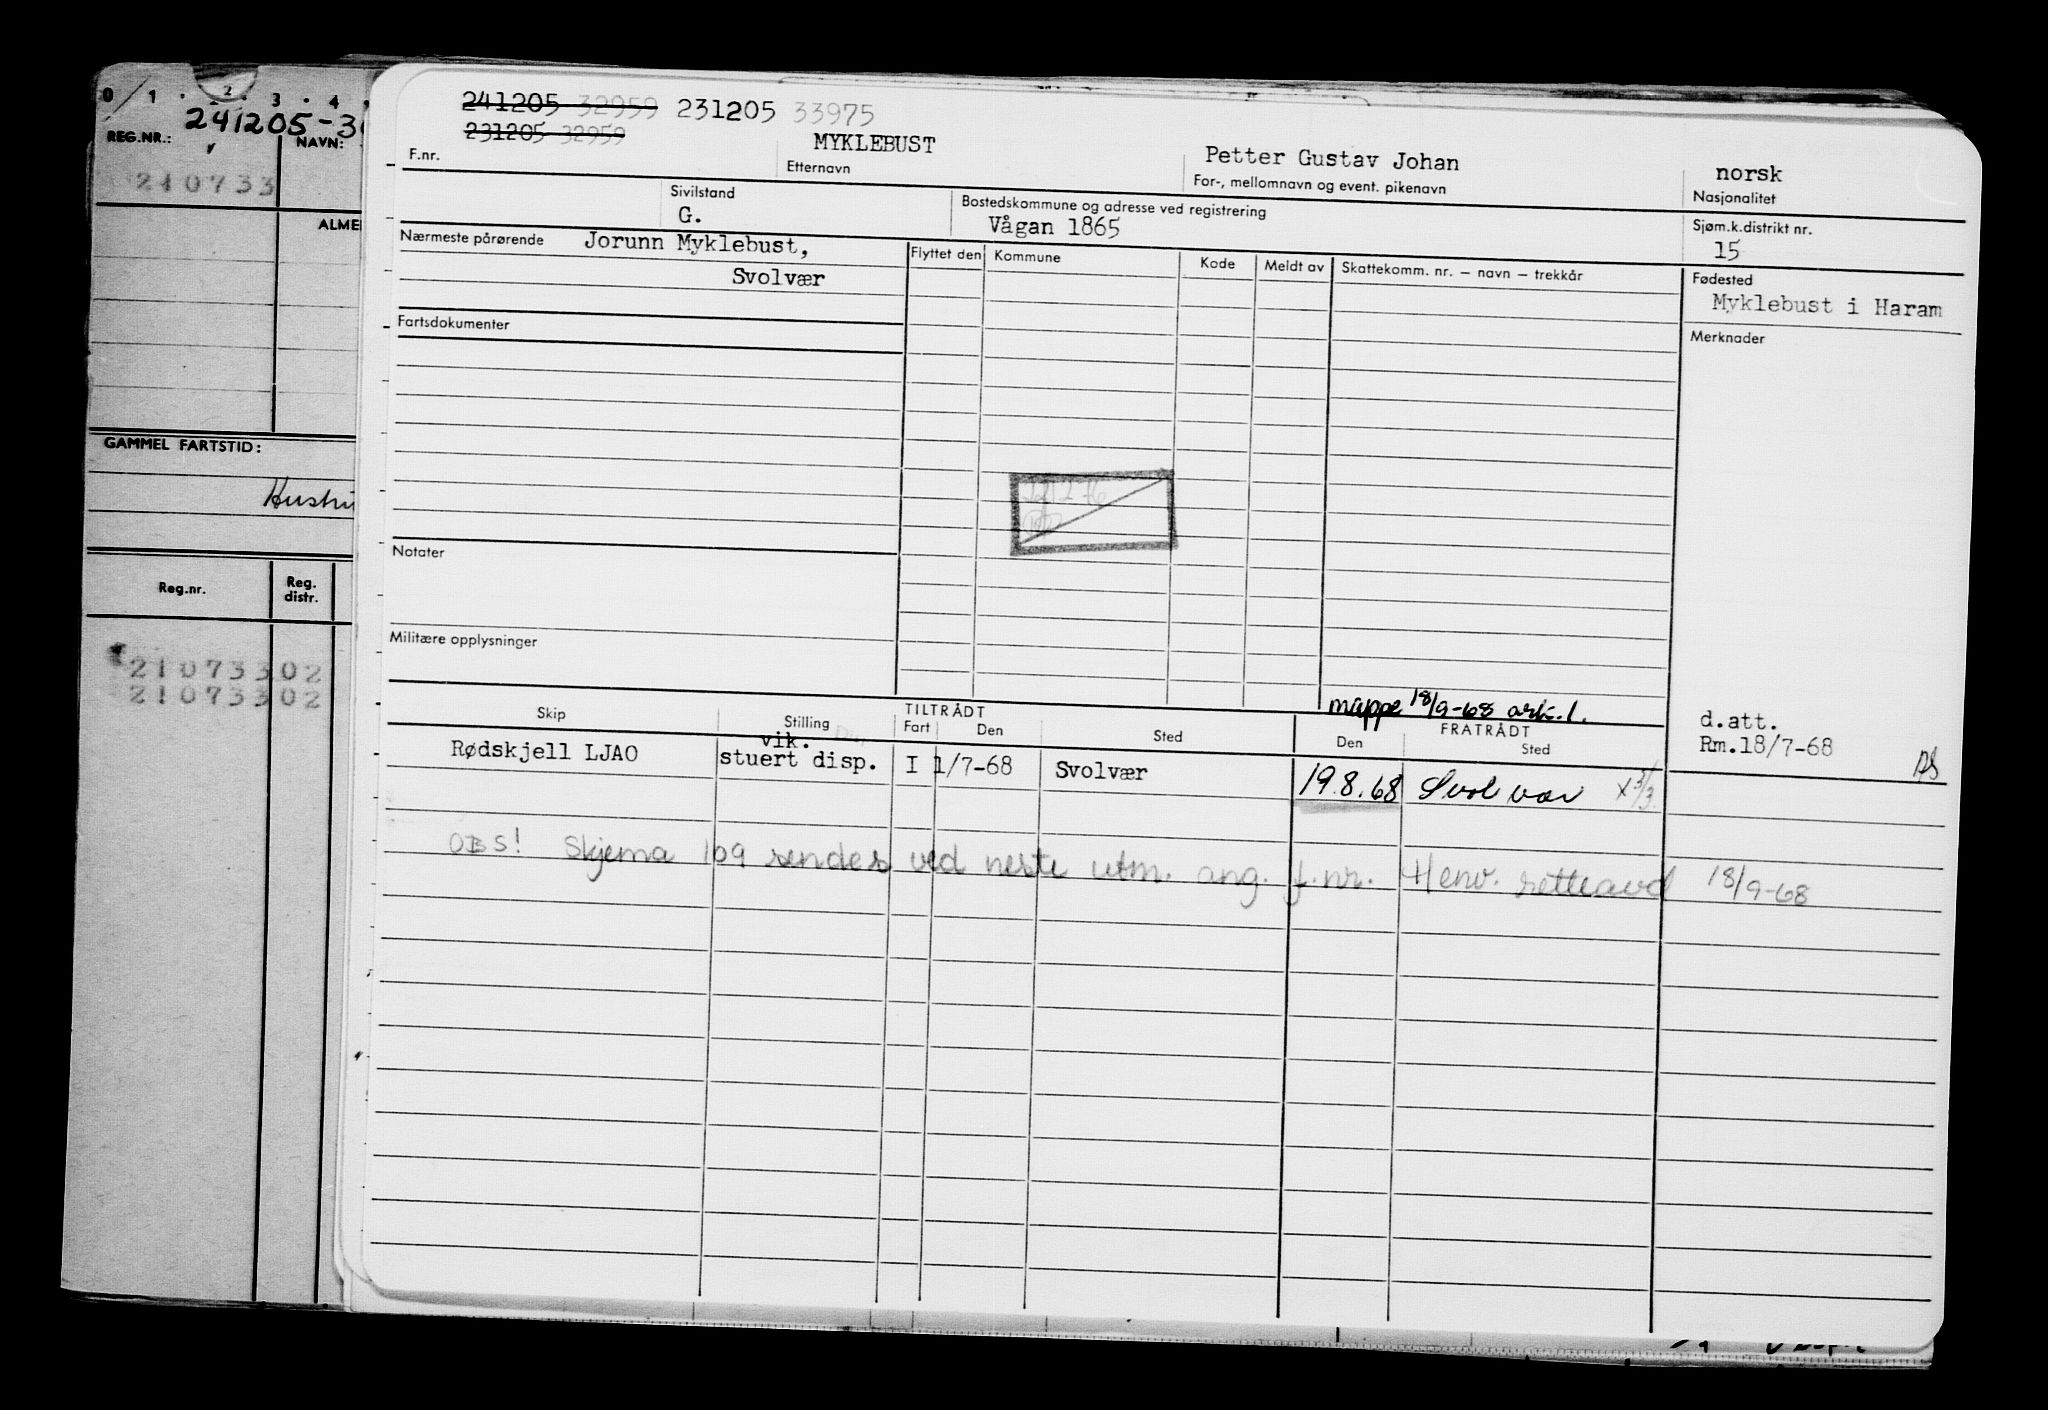 0 1 . 2 . 3 . 4
241205-3
REG.NR.: NAVN:
210733
ALME
GAMMEL FARTSTID:
Hustru
Reg.nr. Reg. distr.
21073302
21073302
241205 32959 231205 33975
231205 32959
F.nr. MYKLEBUST Petter Gustav Johan norsk
Etternavn For-, mellomnavn og event. pikenavn Nasjonalitet
Sivilstand Bostedskommune og adresse ved registrering Sjøm.k.distrikt nr.
G. Vågan 1865 15
Nærmeste pårørende Jorunn Myklebust, Flyttet den Kommune Kode Meldt av Skattekomm. nr. – navn – trekkår Fødested
Svolvær Myklebust i Haram
Fartsdokumenter Merknader
Notater
Militære opplysninger
mappe 18/9-68 ark. 1.
Skip Stilling TILTRÅDT Fart Den Sted FRATRÅDT Den Sted d.att.
vik. Rm.18/7-68
Rødskjell LJAO stuert disp. I 1/7-68 Svolvær 19.8.68 Svolvær x 3/3
OBS! Skjema 109 sendes ved neste utm. ang. f.nr. Henv. retteavd 18/9-68